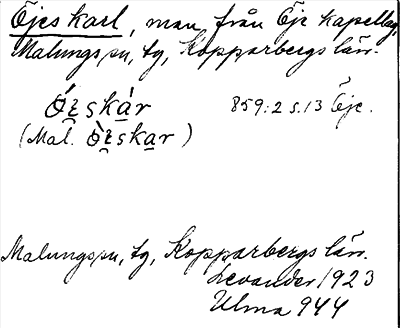 Öjes karl, man från Öje kapellag,
Malungs sn, tg, Kopparbergs län.
Ö́ɛskár 859:2 s.13 Öje.
(Mal. Ö̀ɛskar)
Malungs sn, tg, Kopparbergs län.
Levander 1923
Ulma 944